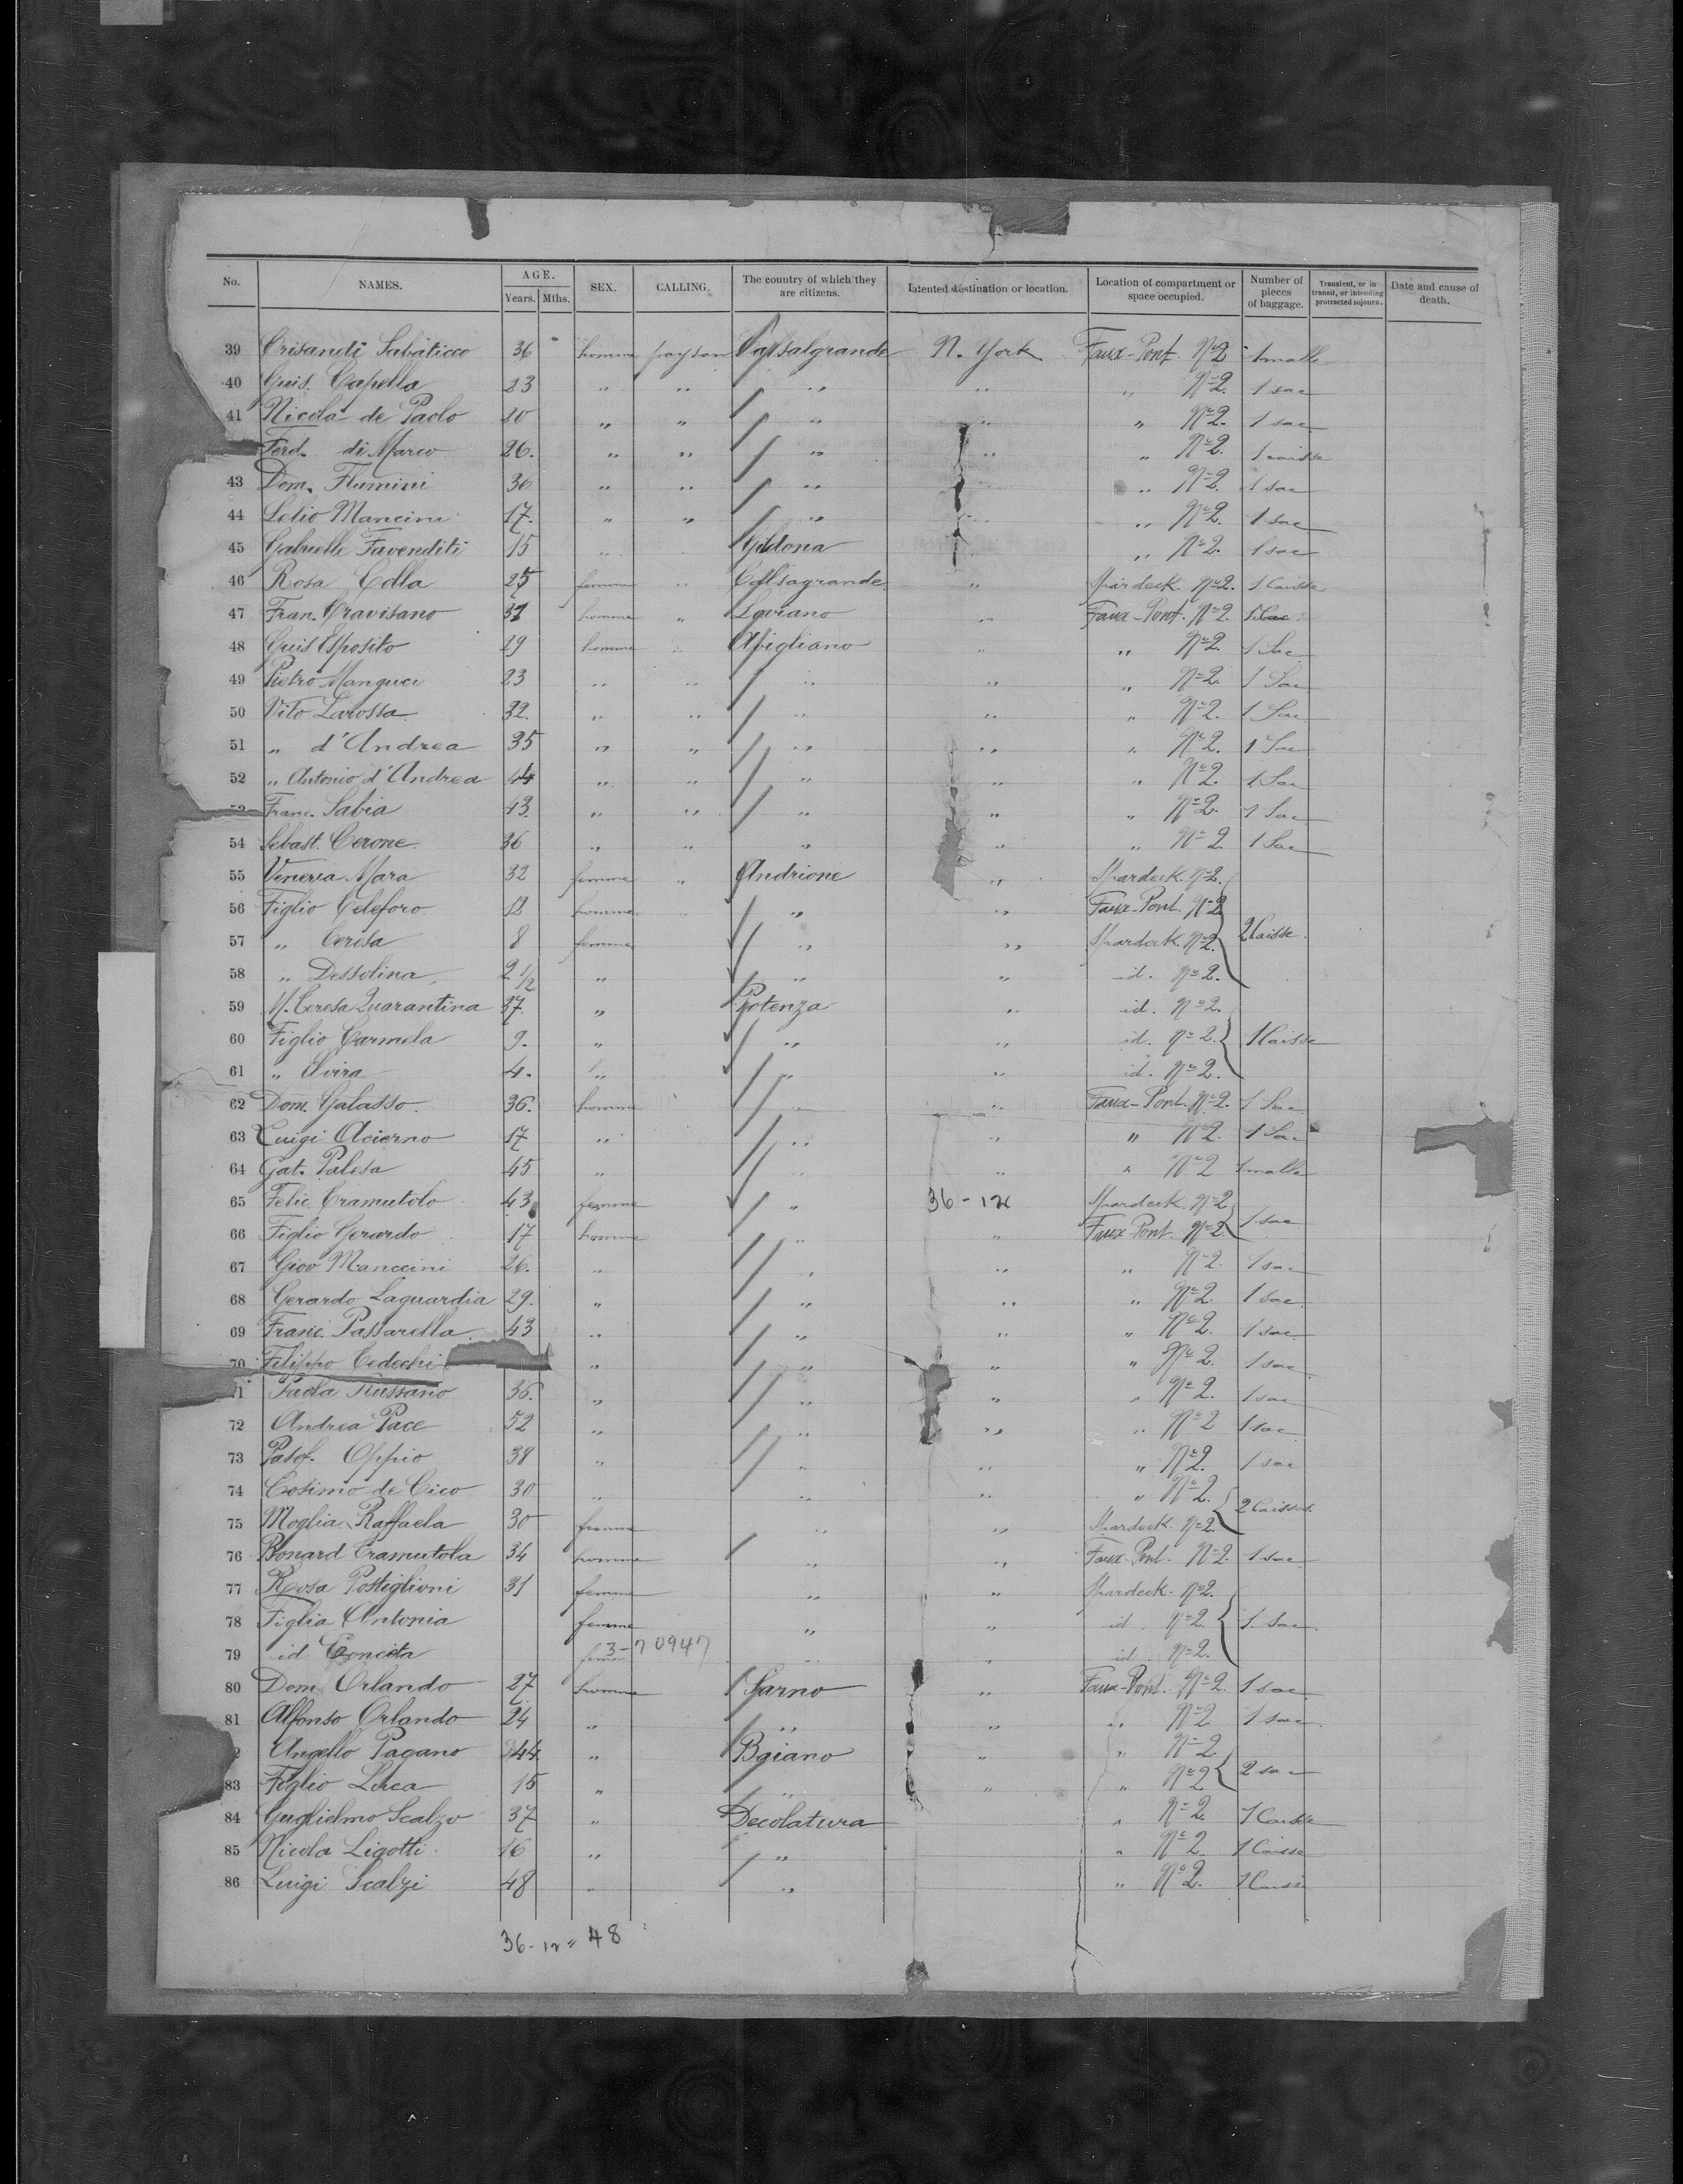 No. NAMES. AGE. Years. Mths. SEX. CALLING. The country of which they are citizens. Intented destination or location. Location of compartment or space occupied. Number of pieces of baggage. Transient, or in transit, or intending protracted sojourn. Date and cause of death.
39 Crisandi Sabaticco 36 homme paysan Casalgrande N. York Faux-Pont. Nº2 1 malle
40 Guis. Capella 23 " " " " " Nº2. 1 sac
41 Nicola de Paolo 20 " " " " " Nº2. 1 sac
Ferd. di Marco 26. " " " " " Nº2. 1 caisse
43 Dom. Flumini 36 " " " " " Nº2. 1 sac
44 Lelio Mancini 17. " " " " " Nº2. 1 sac
45 Gabrielle Favenditi 15 " " " Nº2. 1 sac
46 Rosa Colla 25 femme " " Spardeck. Nº2. 1 Caisse
47 Fran. Gravisano homme " " Faux-Pont. Nº2. 1 Sac
48 Guis Esposito 29 homme " Apigliano " " Nº2. 1 Sac
49 Pietro Mangucci 23 " " " " " Nº2. 1 Sac
50 Vito Larossa 32. " " " " " Nº2. 1 Sac
51 " d'Andrea 35 " " " " " Nº2. 1 Sac
52 " Antonio d'Andrea 44 " " " " " Nº2. 1 Sac
Franc. Sabia 43. " " " " " Nº2. 1 Sac
54 Sebast. Cerone. 36 " " " " " Nº2 1 Sac
55 Veneria Mara 32 femme " Andrione " Spardeck. Nº2.
56 Figlio Geleforo 12 homme " " " Faux-Pont. Nº2
57 " Ceresa 8 femme " " Spardeck. Nº2. 2 Caisse.
58 " Dessolina, 2 1/2 " " " id. Nº2.
59 M. Ceresa Quarantina 37. " Potenza " id. Nº2.
60 Figlio Carmela 9. " " " id. Nº2. 1 Caisse
61 " Elvira 4. " " " id. Nº2.
62 Dom. Galasso. 36. homme " " Faux-Pont. Nº2. 1 Sac
63 Luigi Acierno 17 " " " " Nº2. 1 Sac
64 Gat. Palesa 45 " " " " Nº2 1 malle
65 Felic. Cramutolo 43 femme " 36-12 Spardeck. Nº2
66 Figlio Gerardo 17 homme " " Faux-Pont. Nº2. 1 sac
67 Giov Manccini 26. " " " " Nº2. 1 sac
68 Gerardo Laguardia 29. " " " " Nº2. 1 sac.
69 Franc. Passarella 43 " " " " Nº2. 1 sac.
70 Filippo Cedechi " " " " Nº2. 1 sac
Paola Russano 36. " " " " Nº2. 1 sac
72 Andrea Pace 52 " " " " Nº2 1 sac
73 Pasq. Oppio 38 " " " " Nº2. 1 sac
74 Cosimo de Cico 30 " " " " Nº2.
75 Moglia Raffaela 30 femme " " Spardeck. Nº2. 2 Caisses.
76 Bonard Cramutola 34 homme " " Faux-Pont. Nº2. 1 sac
77 Rosa Postiglioni 31 femme " " Spardeck. Nº2.
78 Figlia Antonia femme " " id. Nº2. 1 Sac.
79 id Conceta 3-70947 " " id Nº2.
80 Dom. Orlando 27 homme Sarno " Faux-Pont. Nº2. 1 sac
81 Alfonso Orlando 24 " " " " Nº2 1 sac.
Angello Pagano 44 " " " Nº2
83 Figlio Luca 15 " " " " Nº2 2 sac
84 Guglielmo Scalzo 37 " Decolatura " Nº2 1 Caisse
85 Nicola Ligotti. 16 " " " Nº2. 1 Caisse
86 Luigi Scalzi 48 " " " Nº2. 1 Caisse
36-12 = 48